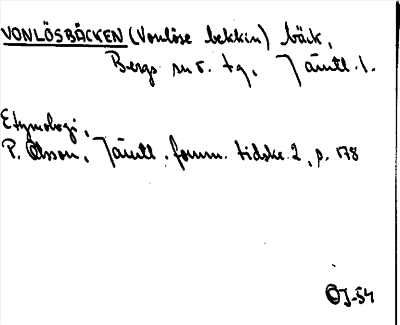 VONLÖSBÄCKEN (Vonlöse bekkin) bäck,
Bergs sn o. tg, Jämtl. l.
Etymologi,
P. Olsson, Jämtl. fornm. tidskr. 2, p. 178
OJ-54